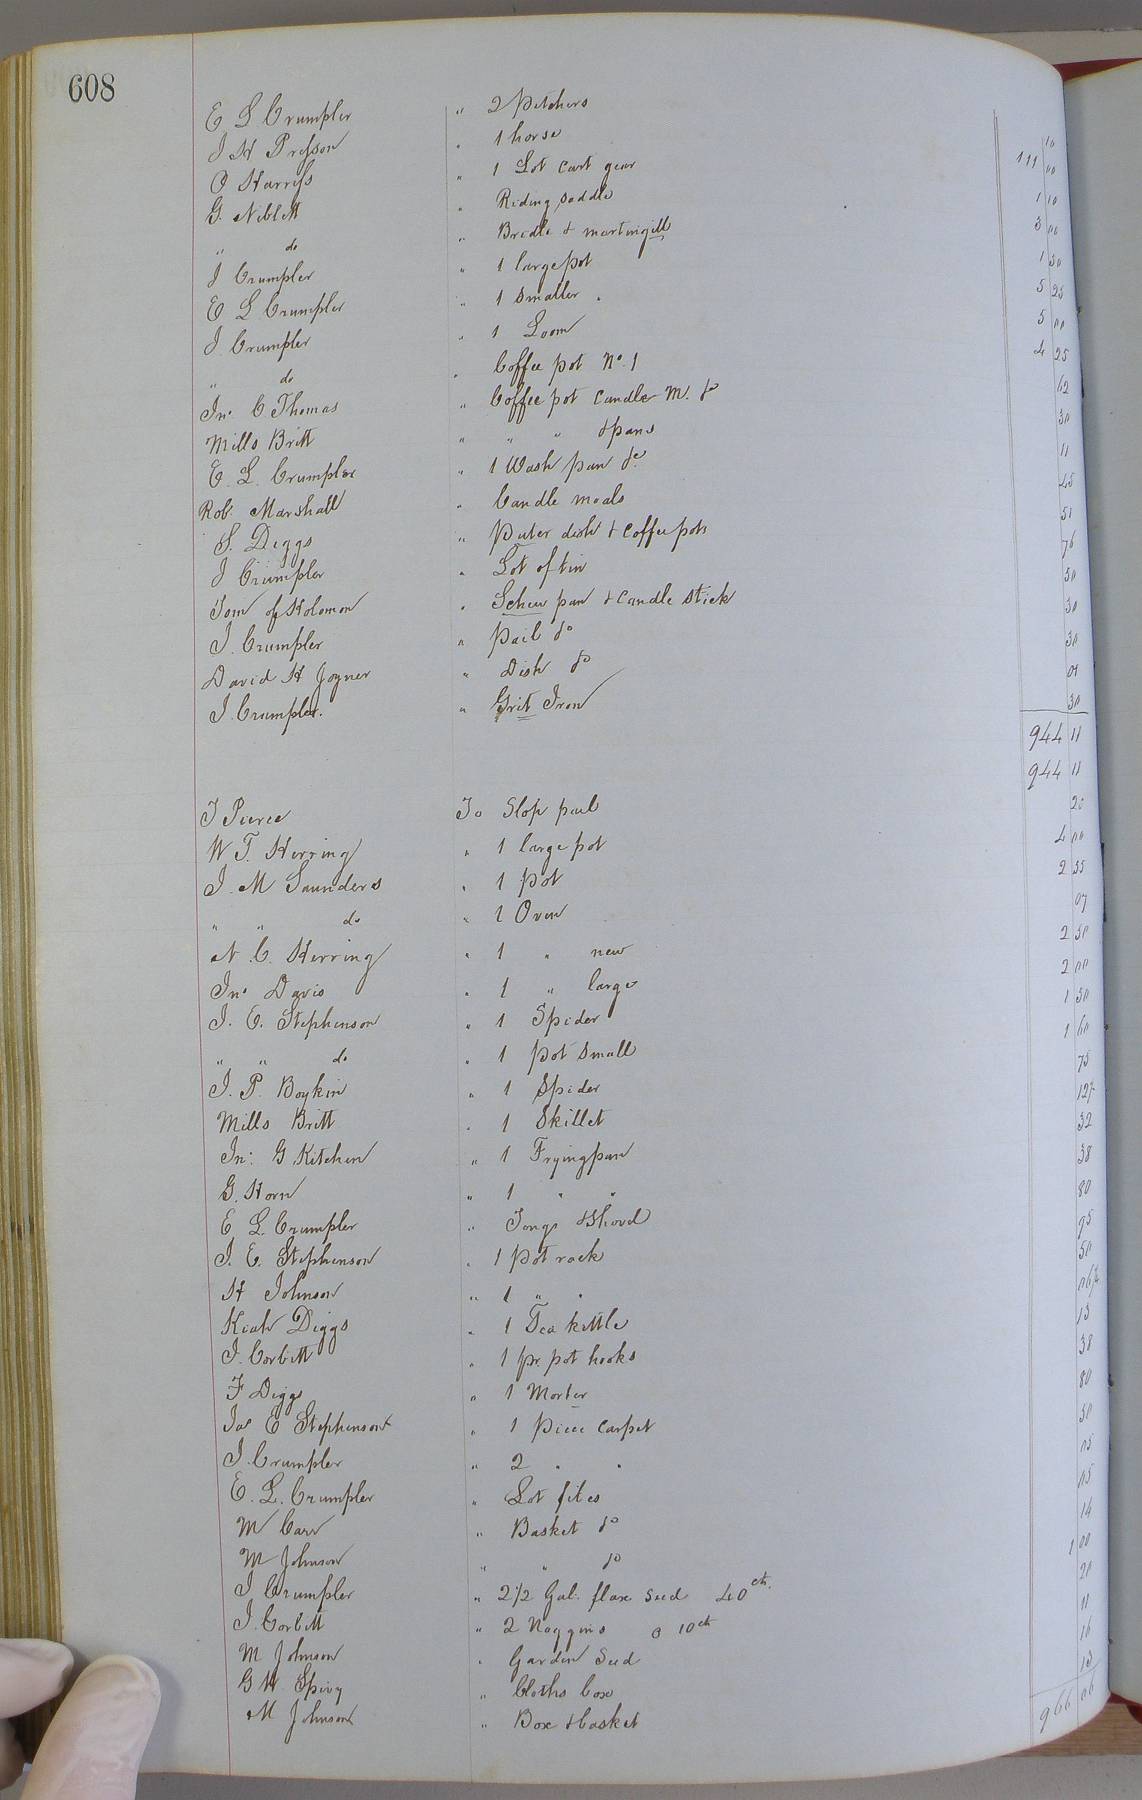 608
E L Crumpler " 2 Pitchers 10
J H Presson " 1 horse 111 00
O Harriss " 1 Lot Cart gear 1 10
G. Niblett " Riding saddle 3 00
" do " Bridle & martingill 1 50
J Crumpler " 1 large pot 5 25
E L Crumpler " 1 smaller " 5 00
J. Crumpler " 1 Loom 4 25
" do " Coffee pot No. 1 62
Jno. C Thomas " Coffee pot Candle M. &c 30
Mills Britt " " " & pans 11
E. L. Crumpler " 1 Wash pan &c. 45
Rob. Marshall " Candle moals 51
S. Diggs " Puter dish & Coffee pots 76
J Crumpler " Lot of tin 50
Tom of Holomon " Schew pan & Candle Stick 30
J. Crumpler " Pail &c 30
David H Joyner " Dish &c 01
J. Crumpler. " Grit Iron 30
944 11
944 11
J Pierce To Slop pail 20
W T. Herring " 1 large pot 4 00
J. M Saunders " 1 Pot 2 55
" " do " 1 Oven 07
N. C. Herring " 1 " new 2 50
Jno. Davis " 1 " large 2 00
J. E. Stephenson " 1 Spider 1 50
" " do " 1 Pot Small 1 60
J. P. Boykin " 1 Spider 75
Mills Britt " 1 Skillet 12½
Jno. G Kitchen " 1 Fryingpan 32
G. Horn " 1 " " 38
E L. Crumpler " Tongs & Shovel 80
J. E. Stephenson " 1 Pot rack 95
H Johnson " 1 " " 50
Kiah Diggs " 1 Tea kettle 06¼
J. Corbitt " 1 pr. pot hooks 13
F Diggs " 1 Morter 38
Jas E Stephenson " 1 Piece Carpet 80
J. Crumpler " 2 " " 50
E. L. Crumpler " Lot files 05
M Carr " Basket &c 05
M Johnson " " &c 14
J Crumpler " 2 1/2 Gal. flax seed 40 cts. 1 00
J. Corbitt " 2 Noggins @ 10 cts 20
M Johnson " Garden Seed 11
G W. Spivy " Cloths box 16
M Johnson " Box & basket 13
966 06